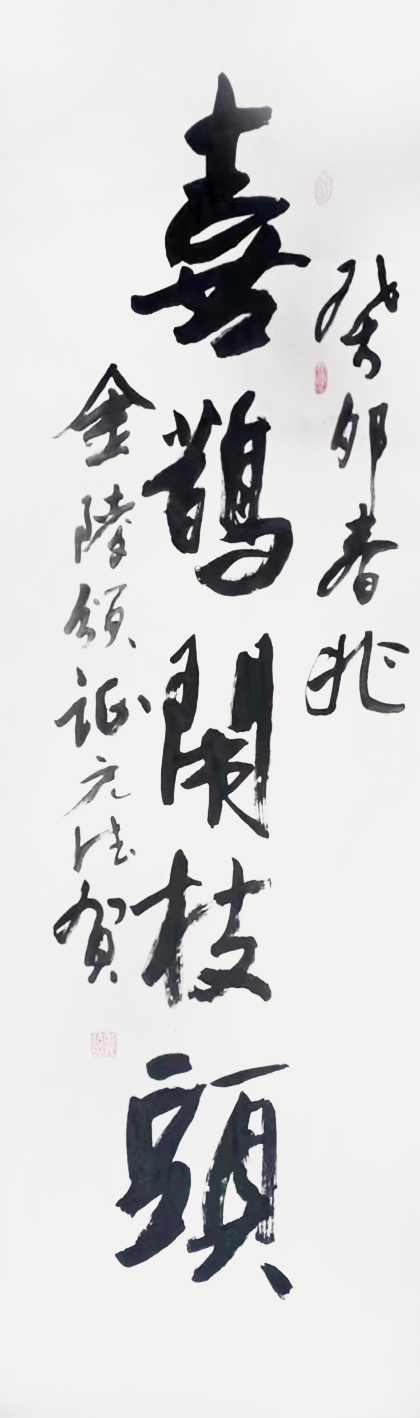 癸卯春兆
喜鵲鬧枝頭
金陵頌証元法賀